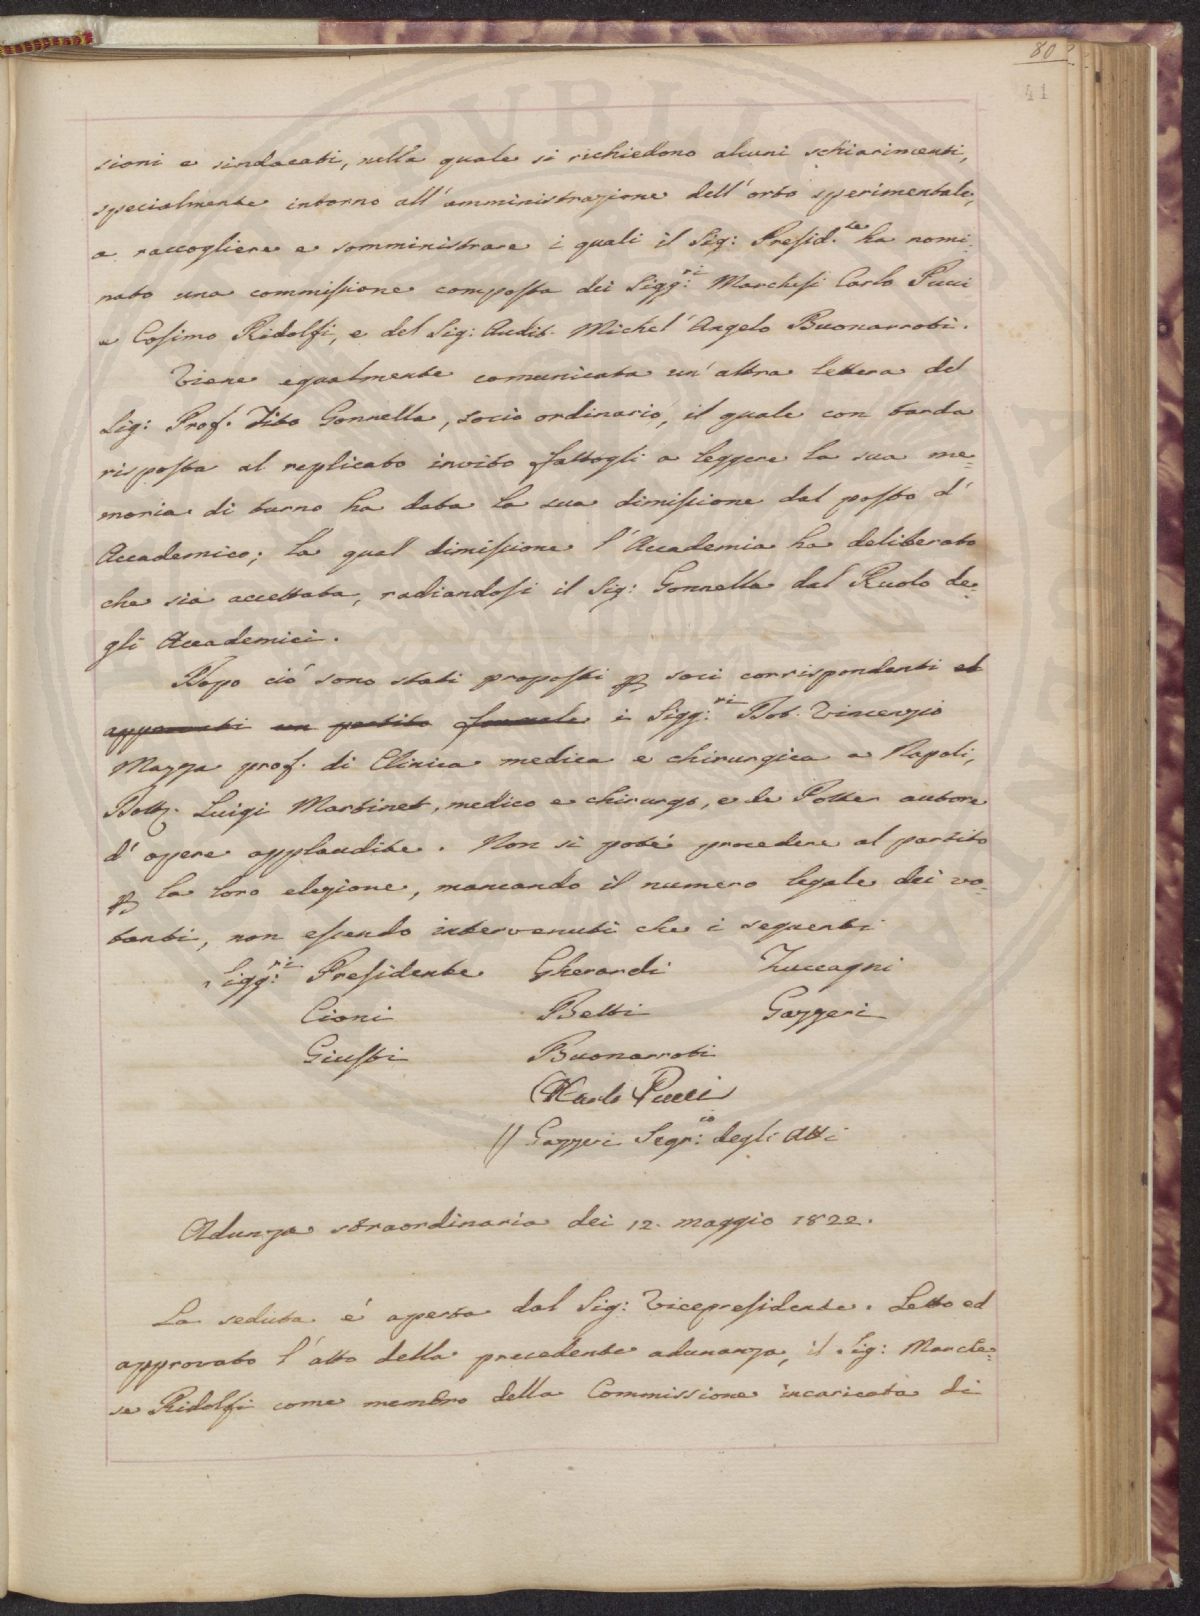 80
41
sioni e sindacati, nella quale si richiedono alcuni schiarimenti,
specialmente intorno all'amministrazione dell'orto sperimentale,
a raccogliere e somministrare i quali il Sig: Presid.te ha nomi-
nato una commissione composta dei Sigg:ri Marchesi Carlo Pucci
e Cosimo Ridolfi, e del Sig: Audit. Michel'Angelo Buonarroti.
Viene egualmente comunicata un'altra lettera del
Sig: Prof. Tito Gonnella, socio ordinario, il quale con tarda
risposta al replicato invito fattogli a leggere la sua me=
moria di turno ha data la sua dimissione dal posto d'
Accademico; la qual dimissione l'Accademia ha deliberato
che sia accettata, radiandosi il Sig: Gonnella dal Ruolo de=
gli Accademici.
Dopo ciò sono stati proposti p soci corrispondenti et
approvati un partito formale i Sigg:ri Dot. Vincenzio
Mazza prof. di Clinica medica e chirurgica a Napoli,
Dott. Luigi Martinet, medico e chirurgo, e de Potter autore
d'opere applaudite. Non si poté procedere al partito
p la loro elezione, mancando il numero legale dei vo=
tanti, non essendo intervenuti che i seguenti
Sigg:ri Presidente Gherardi Zuccagni
Cioni Betti Gazzeri
Giusti Buonarroti
Carlo Pucci
Gazzeri Segr:io degli Atti
Adunza straordinaria dei 12. maggio 1822.
La seduta é aperta dal Sig: Vicepresidente. Letto ed
approvato l'atto della precedente adunanza, il Sig: Marche=
se Ridolfi come membro della Commissione incaricata di